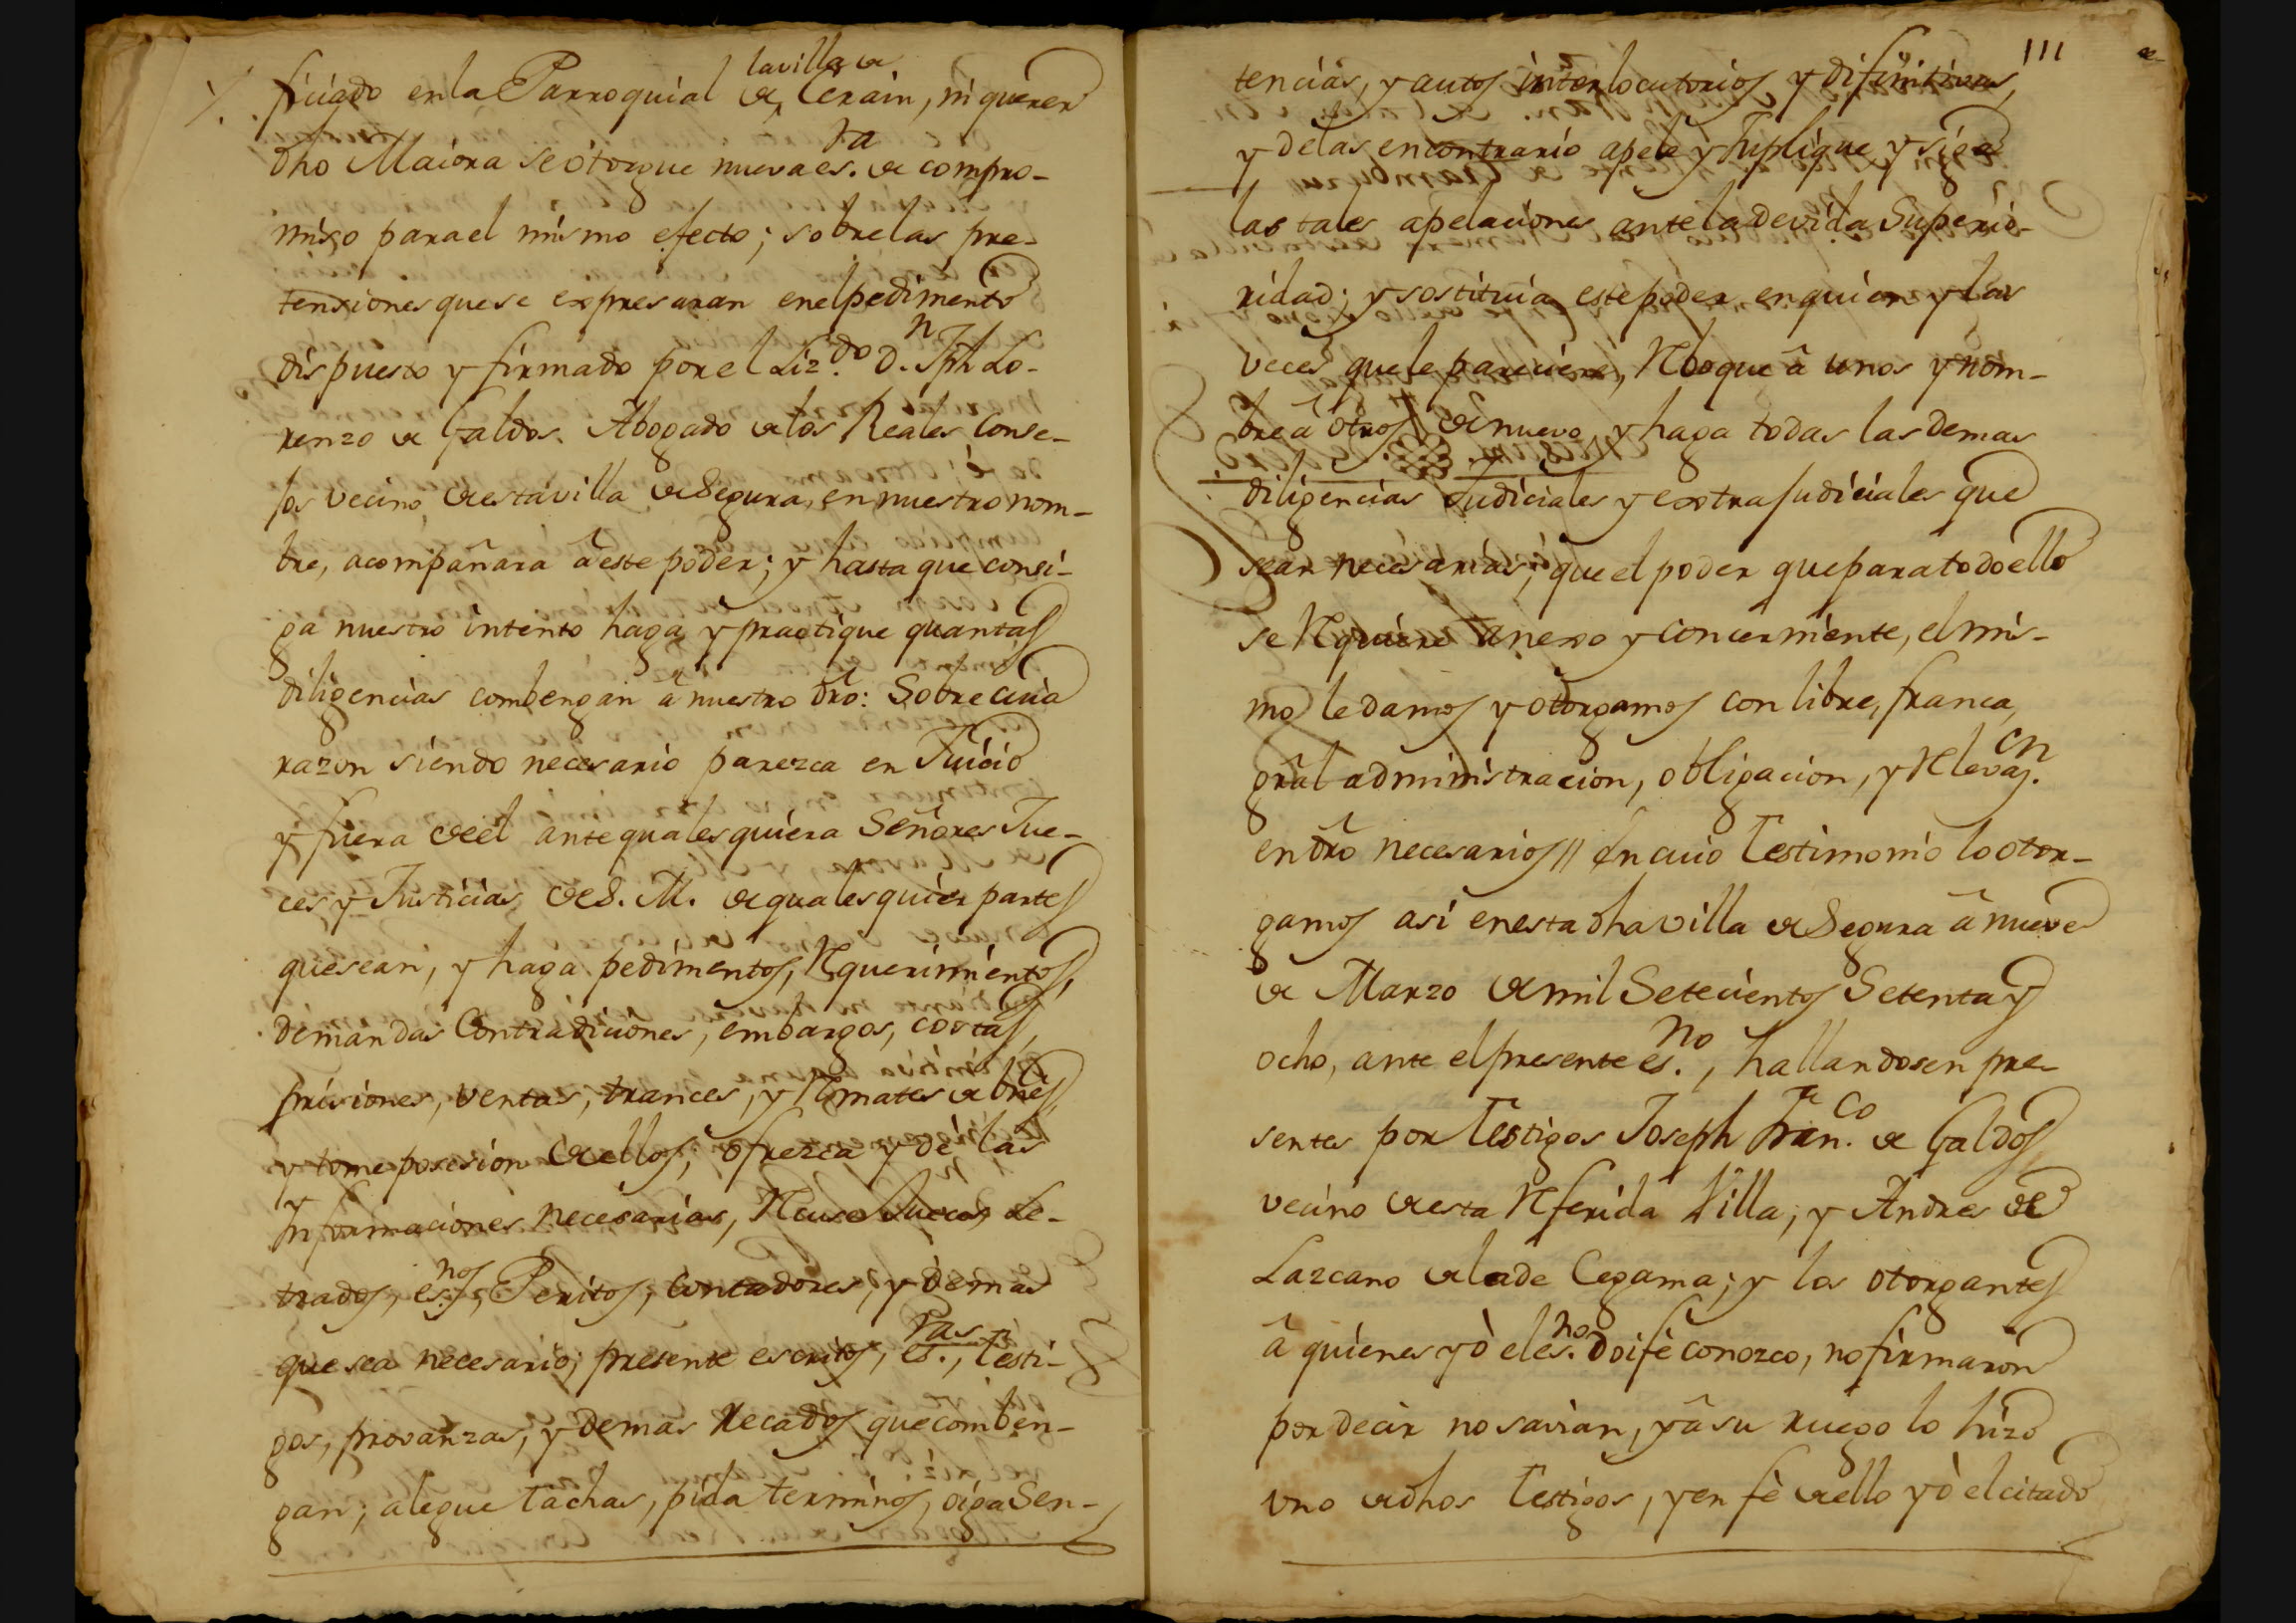 la villa de
ficiado en la Parroquial de Cerain, ni querer
dho Maiora se ótorgue nueva es.ra de compro-
miso para el mismo efecto; sobre las pre-
tensiones que se expresaran en el pedimento
dispuesto y firmado por el Liz.do D.n Jph Lo-
renzo de Galdos. Abogado de los Reales Conse-
jos vecino de esta villa de Segura, en nuestro nom-
bre, acompañara â este poder; y hasta que consi-
ga nuestro intento haga y practique quantas
diligencias combengan â nuestro dro: Sobre cuia
razon siendo necesario parezca en Juicio
y fuera de el ante qualesquiera Señores Jue-
ces y Justicias de S. M. de qualesquier partes
que sean, y haga pedimentos, Requerimientos,
demandas Contradiciones, embargos, costas,
prisiones, ventas, trances, y Remates de bnes,
y tome posesion de ellos, ofrezca y dé las
Informaciones necesarias, Recuse Jueces Le-
trados, es.nos, Peritos, contadores, y demas
que sea necesario; presente escritos, es.ras, testi-
gos, provanzas, y demas Recados que comben-
gan; alegue tachas, pida terminos, oiga Sen-
111
tencias, y autos interlocutorios y difinitivas,
y de las en contrario apele y Suplique y siga
las tales apelaciones ante la devida Superio-
ridad; y sostituia este poder en quien y las
veces que le pareciere, Reboque â unos y nom-
bre â otros de nuevo y haga todas las demas
diligencias Judiciales y extrajudiciales que
sean necesarias, que el poder que para todo ello
se Requiere anexo y concerniente, el mis-
mo le damos y otorgamos con libre, franca,
gral administracion, obligacion, y Relevaz.on
en dro necesarios // En cuio Testimonio lo otor-
gamos asi en esta dha villa de Segura â nueve
de Marzo de mil Setecientos Setenta y
ocho, ante el presente es.no, hallandosen pre-
sentes por Testigos Joseph Fran.co de Galdos
vecino de esta Referida Villa, y Andres de
Lazcano de la de Cegama; y los otorgantes
â quienes yò el es.no doi fè conozco, no firmaron
por decir no savian, y â su ruego lo hizo
vno de dhos Testigos, y en fè de ello yò el citado